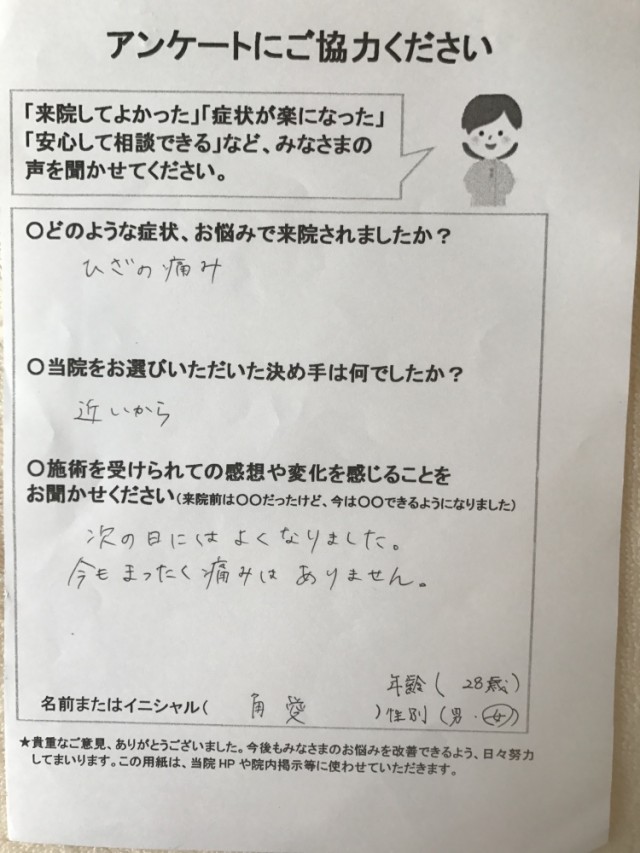 アンケートにご協力ください
「来院してよかった」「症状が楽になった」
「安心して相談できる」など、みなさまの
声を聞かせてください。
〇どのような症状、お悩みで来院されましたか？
ひざの痛み
〇当院をお選びいただいた決め手は何でしたか？
近いから
〇施術を受けられての感想や変化を感じることを
お聞かせください(来院前は〇〇だったけど、今は〇〇できるようになりました)
次の日にはよくなりました。
今もまったく痛みはありません。
年齢( 28歳)
名前またはイニシャル( 角 愛 )性別(男・女)
★貴重なご意見、ありがとうございました。今後もみなさまのお悩みを改善できるよう、日々努力
してまいります。この用紙は、当院HPや院内掲示等に使わせていただきます。